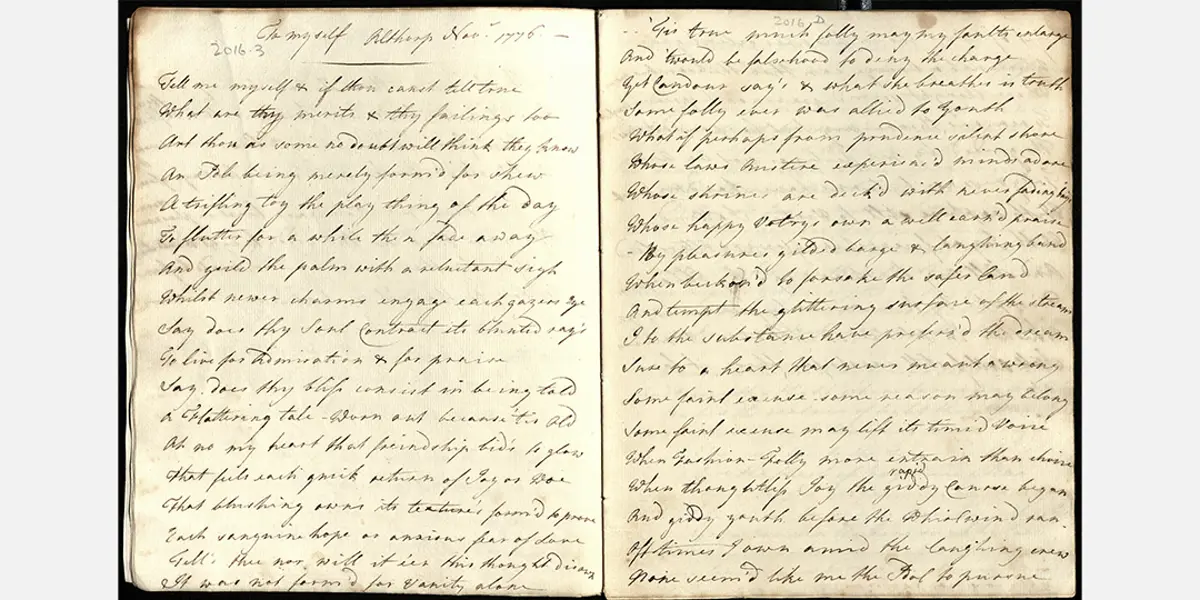 To myself Althorp Nov.r 1776. —
2016.3
Tell me myself & if thou canst tell true
What are thy merits & thy failings too
Art thou as some no doubt will think they know
An Idle being merely form'd for Shew
A trifling toy the play thing of the day
To flutter for a while then fade away
And yeild the palm with a reluctant sigh
Whilst newer charms engage each gazers Eye
Say does thy Soul Contract its blunted ray's
To live for Admiration & for praise
Say, does thy bliss consist in being told
A Flattering tale - Worn out because 'tis Old
Ah no my heart that friendship bid's to glow
That feels each quick return of Joy or Woe
That blushing owns its texture's form'd to prove
Each sanguine hope or anxious fear of Love
Tell's thee nor will it e'er this thought disown
It was not form'd for Vanity alone
2016 D
'Tis true much folly may my faults enlarge
And t'would be falsehood to deny the charge
Yet Candour say's & what she breathes is truth
Some folly ever was allied to Youth
What if perhaps from prudence silent shore
Whose laws Austere experienc'd minds adore
Whose shrines are deck'd with never fading bays
Whose happy Vot'rys own a well earn'd praise
- By pleasures gilded barge & laughing band
When beckon'd to forsake the safer land
And tempt the glittering surface of the stream
I to the substance have prefer'd the dream
Sure to a heart that never meant a wrong
Some faint excuse - some reason may belong
Some faint excuse may lift its timid Voice
When Fashion - Folly more entrain than choice
When thoughtless Joy the rapid giddy Canvass began
And giddy youth before the Whirlwind ran
Oft times I own amid the laughing crew
None seem'd like me the Idol to pursue